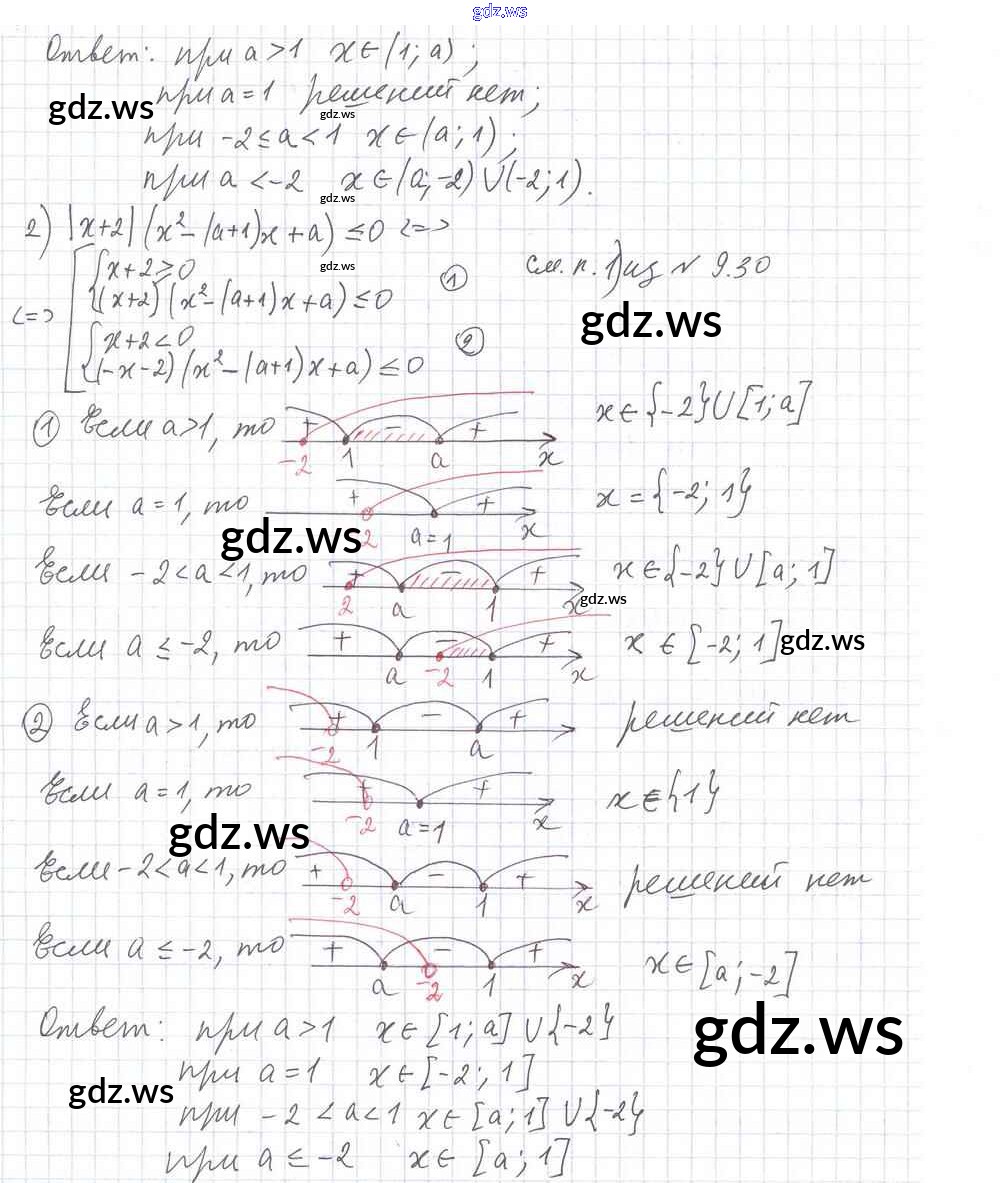 gdz.ws
Ответ: при a>1 x∈(1; a);
при a=1 решений нет;
gdz.ws
gdz.ws
при -2≤a<1 x∈(a; 1);
при a<-2 x∈(a;-2)∪(-2;1).
gdz.ws
2) |x+2|(x²-(a+1)x+a)≤0 <=>
<=> [ { x+2≥0
(x+2)(x²-(a+1)x+a)≤0 ①
{ x+2<0
(-x-2)(x²-(a+1)x+a)≤0 ②
gdz.ws
см. п. 1) из № 9.30
gdz.ws
① Если a>1, то + - + -2 1 a x x∈{-2}∪[1; a]
Если a=1, то + + -2 a=1 x x={-2; 1}
gdz.ws
Если -2<a<1, то + - + 2 a 1 x x∈{-2}∪[a; 1]
gdz.ws
Если a≤-2, то + - + a -2 1 x x∈[-2; 1]
gdz.ws
② Если a>1, то + - + -2 1 a решений нет
Если a=1, то + + -2 a=1 x x∈{1}
gdz.ws
Если -2<a<1, то + - + -2 a 1 x решений нет
Если a≤-2, то + - + a -2 1 x x∈[a; -2]
Ответ: при a>1 x∈[1; a]∪{-2}
gdz.ws
при a=1 x∈[-2; 1]
gdz.ws
при -2<a<1 x∈[a; 1]∪{-2}
при a≤-2 x∈[a; 1]